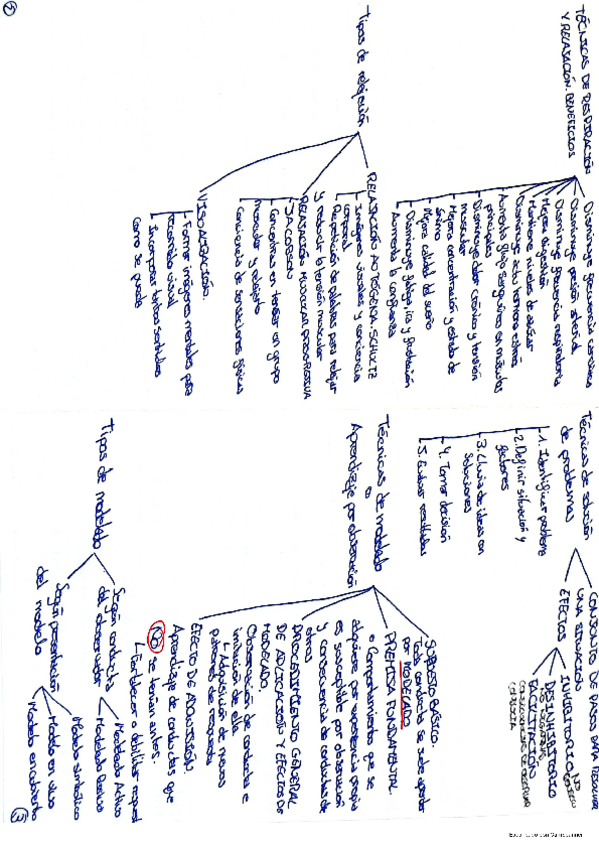 TÉCNICAS DE RESPIRACIÓN
Y RELAJACIÓN. BENEFICIOS
Disminuye frecuencia cardiaca
Disminuye presión arterial
Disminuye frecuencia respiratoria
Mejora digestión
Mantiene niveles de azúcar
Disminuye activ. hormona estrés
Aumenta flujo sanguíneo en músculos
principales
Disminuye dolor crónico y tensión
muscular
Mejora concentración y estado de
ánimo
Mejora calidad del sueño
Disminuye fatiga, ira y frustración
Aumenta la confianza
Tipos de relajación
RELAJACIÓN AUTÓGENA. SCHULTZ
Imágenes visuales y conciencia
corporal
Repetición de palabras para relajar
y reducir la tensión muscular
RELAJACIÓN MUSCULAR PROGRESIVA
JACOBSON
Concentrarse en tensar en grupo
muscular y relajarlo
Conciencia de sensaciones físicas
VISUALIZACIÓN.
Formar imágenes mentales para
recorrido visual
Incorporar tantos sentidos
como se pueda
2
Técnicas de solución
de problemas
CONJUNTO DE PASOS PARA RESOLVER
UNA SITUACIÓN
EFECTOS
INHIBITORIO
DESINHIBITORIO
FACILITACIÓN
1. Identificar problema
2. Definir situación y
factores
3. Lluvia de ideas en
soluciones
4. Tomar decisión
5. Evaluar resultados
Técnicas de modelado
Aprendizaje por observación
SUPUESTO BÁSICO.
Toda conducta se puede aprender
por MODELADO
PREMISA FUNDAMENTAL
Comportamiento que se
adquiere por experiencia propia
es susceptible por observación
y consecuencia de conductas de
otros
PROCEDIMIENTO GENERAL
DE APLICACIÓN Y EFECTOS DE
MODELADO.
Observación de conducta e
imitación de ella
Adquisición de nuevos
patrones de respuesta
EFECTO DE ADQUISICIÓN.
Aprendizaje de conductas que
NO se tenían antes.
Fortalecer o debilitar respuest
Tipos de modelado
Según conducta
del observador
Modelado Activo
Modelado Pasivo
Según presentación
del modelo
Modelo en vivo
Modelo simbólico
Modelo encubierto
3